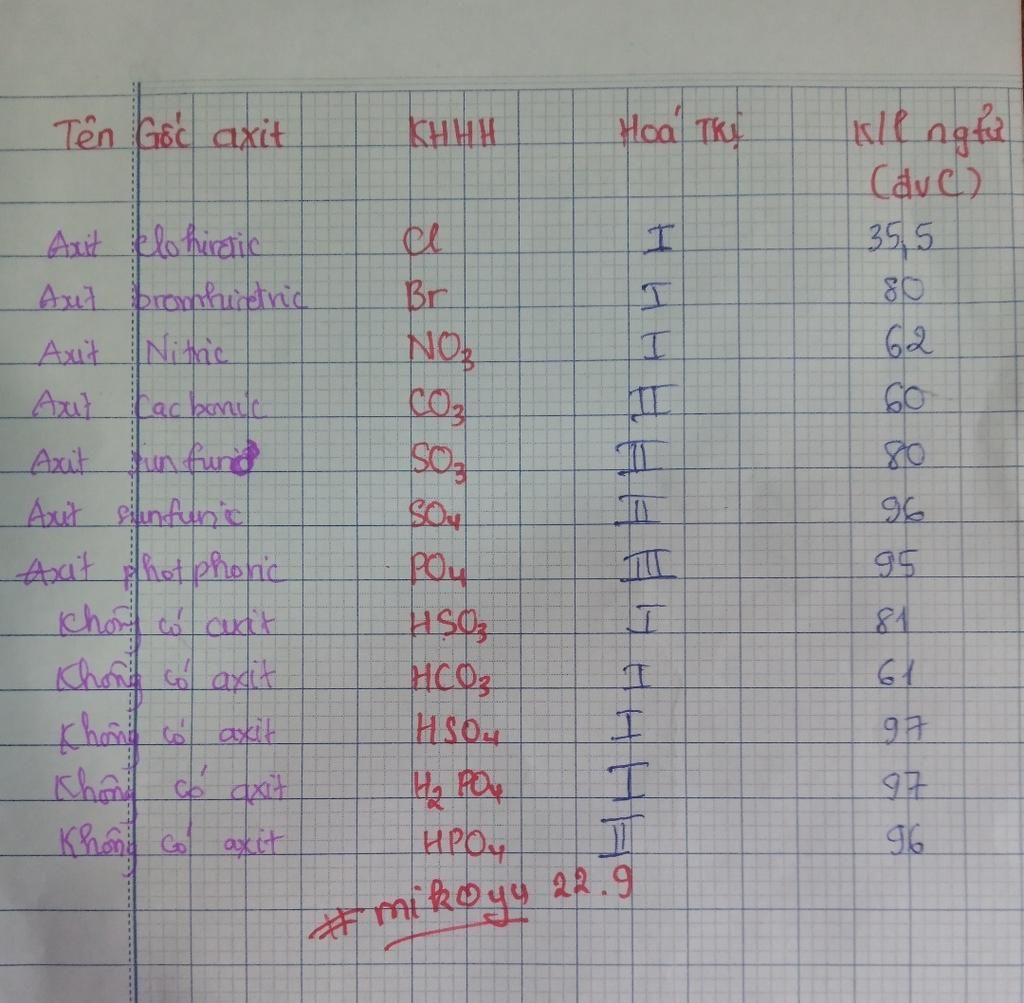 Tên Gốc axit KHHH Hoá Trị K/l ngtử
(đvC)
Axit clohiđric Cl I 35,5
Axit bromhiđric Br I 80
Axit Nitric NO₃ I 62
Axit Cacbonic CO₃ II 60
Axit sunfurơ SO₃ II 80
Axit sunfuric SO₄ II 96
Axit photphoric PO₄ III 95
Không có axit HSO₃ I 81
Không có axit HCO₃ I 61
Không có axit HSO₄ I 97
Không có axit H₂PO₄ I 97
Không có axit HPO₄ II 96
#mikoyy 22.9